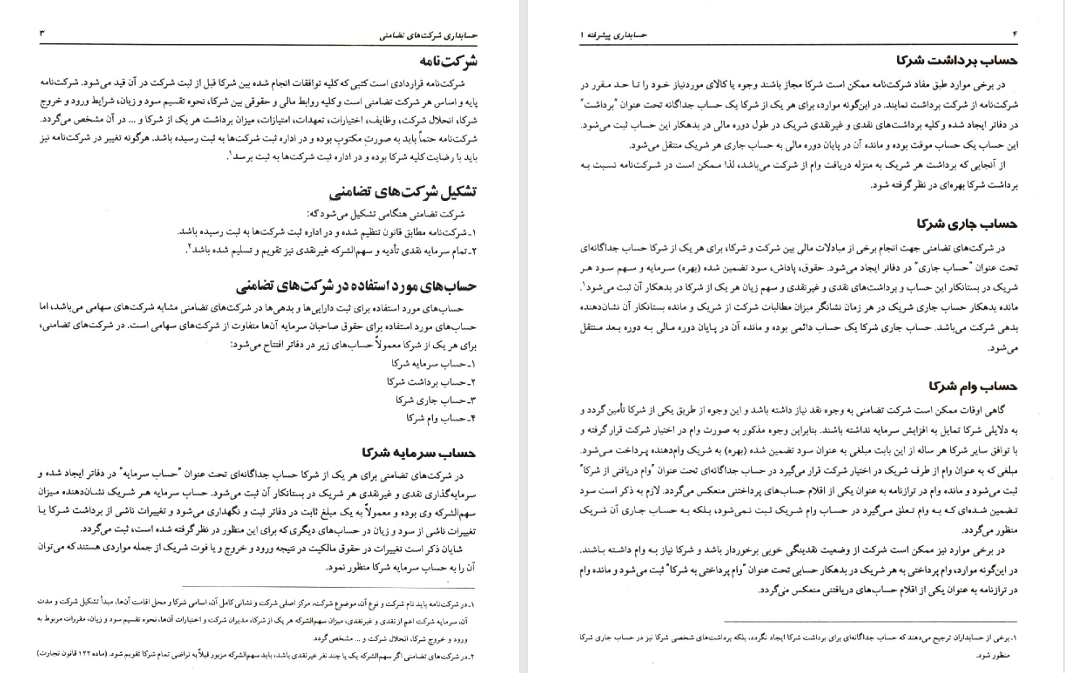 حسابداری شرکت‌های تضامنی ۳
شرکت‌نامه
شرکت‌نامه قراردادی است کتبی که کلیه توافقات انجام شده بین شرکا قبل از ثبت شرکت در آن قید می‌شود. شرکت‌نامه
پایه و اساس هر شرکت تضامنی است و کلیه روابط مالی و حقوقی بین شرکا، نحوه تقسیم سود و زیان، شرایط ورود و خروج
شرکا، انحلال شرکت، وظایف، اختیارات، تعهدات، امتیازات، میزان برداشت هر یک از شرکا و ... در آن مشخص می‌گردد.
شرکت‌نامه حتماً باید به صورتِ مکتوب بوده و در اداره ثبت شرکت‌ها به ثبت رسیده باشد. هرگونه تغییر در شرکت‌نامه نیز
باید با رضایت کلیه شرکا بوده و در اداره ثبت شرکت‌ها به ثبت برسد.۱
تشکیل شرکت‌های تضامنی
شرکت تضامنی هنگامی تشکیل می‌شود که:
۱ـ شرکت‌نامه مطابق قانون تنظیم شده و در اداره ثبت شرکت‌ها به ثبت رسیده باشد.
۲ـ تمام سرمایه نقدی تأدیه و سهم‌الشرکه غیرنقدی نیز تقویم و تسلیم شده باشد.۲
حساب‌های مورد استفاده در شرکت‌های تضامنی
حساب‌های مورد استفاده برای ثبت دارایی‌ها و بدهی‌ها در شرکت‌های تضامنی مشابه شرکت‌های سهامی می‌باشد، اما
حساب‌های مورد استفاده برای حقوق صاحبان سرمایه آن‌ها متفاوت از شرکت‌های سهامی است. در شرکت‌های تضامنی،
برای هر یک از شرکا معمولاً حساب‌های زیر در دفاتر افتتاح می‌شود:
۱ـ حساب سرمایه شرکا
۲ـ حساب برداشت شرکا
۳ـ حساب جاری شرکا
۴ـ حساب وام شرکا
حساب سرمایه شرکا
در شرکت‌های تضامنی برای هر یک از شرکا حساب جداگانه‌ای تحت عنوان "حساب سرمایه" در دفاتر ایجاد شده و
سرمایه‌گذاری نقدی و غیرنقدی هر شریک در بستانکار آن ثبت می‌شود. حساب سرمایه هر شریک نشان‌دهنده میزان
سهم‌الشرکه وی بوده و معمولاً به یک مبلغ ثابت در دفاتر ثبت و نگهداری می‌شود و تغییرات ناشی از برداشت شرکا یا
تغییرات ناشی از سود و زیان در حساب‌های دیگری که برای این منظور در نظر گرفته شده است، ثبت می‌گردد.
شایان ذکر است تغییرات در حقوق مالکیت در نتیجه ورود و خروج و یا فوت شریک از جمله مواردی هستند که می‌توان
آن را به حساب سرمایه شرکا منظور نمود.
۱ـ در شرکت‌نامه باید نام شرکت و نوع آن، موضوع شرکت، مرکز اصلی شرکت و نشانی کامل آن، اسامی شرکا و محل اقامت آن‌ها، مبدأ تشکیل شرکت و مدت
آن، سرمایه شرکت اعم از نقدی و غیرنقدی، میزان سهم‌الشرکه هر یک از شرکا، مدیران شرکت و اختیارات آن‌ها، نحوه تقسیم سود و زیان، مقررات مربوط به
ورود و خروج شرکا، انحلال شرکت و ... مشخص گردد.
۲ـ در شرکت‌های تضامنی اگر سهم‌الشرکه یک یا چند نفر غیرنقدی باشد، باید سهم‌الشرکه مزبور قبلاً به تراضی تمام شرکا تقویم شود. (ماده ۱۲۲ قانون تجارت)
۴ حسابداری پیشرفته ۱
حساب برداشت شرکا
در برخی موارد طبق مفاد شرکت‌نامه ممکن است شرکا مجاز باشند وجوه یا کالای موردنیاز خود را تا حد مقرر در
شرکت‌نامه از شرکت برداشت نمایند. در این‌گونه موارد، برای هر یک از شرکا یک حساب جداگانه تحت عنوان "برداشت"
در دفاتر ایجاد شده و کلیه برداشت‌های نقدی و غیرنقدی شریک در طول دوره مالی در بدهکار این حساب ثبت می‌شود.
این حساب یک حساب موقت بوده و مانده آن در پایان دوره مالی به حساب جاری هر شریک منتقل می‌شود.
از آنجایی که برداشت هر شریک به منزله دریافت وام از شرکت می‌باشد، لذا ممکن است در شرکت‌نامه نسبت به
برداشت شرکا بهره‌ای در نظر گرفته شود.
حساب جاری شرکا
در شرکت‌های تضامنی جهت انجام برخی از مبادلات مالی بین شرکت و شرکا، برای هر یک از شرکا حساب جداگانه‌ای
تحت عنوان "حساب جاری" در دفاتر ایجاد می‌شود. حقوق، پاداش، سود تضمین شده (بهره) سرمایه و سهم سود هر
شریک در بستانکار این حساب و برداشت‌های نقدی و غیرنقدی و سهم زیان هر یک از شرکا در بدهکار آن ثبت می‌شود.۱
مانده بدهکار حساب جاری شریک در هر زمان نشانگر میزان مطالبات شرکت از شریک و مانده بستانکار آن نشان‌دهنده
بدهی شرکت می‌باشد. حساب جاری شرکا یک حساب دائمی بوده و مانده آن در پایان دوره مالی به دوره بعد منتقل
می‌شود.
حساب وام شرکا
گاهی اوقات ممکن است شرکت تضامنی به وجوه نقد نیاز داشته باشد و این وجوه از طریق یکی از شرکا تأمین گردد و
به دلایلی شرکا تمایل به افزایش سرمایه نداشته باشند. بنابراین وجوه مذکور به صورت وام در اختیار شرکت قرار گرفته و
با توافق سایر شرکا هر ساله از این بابت مبلغی به عنوان سود تضمین شده (بهره) به شریک وام‌دهنده پرداخت می‌شود.
مبلغی که به عنوان وام از طرف شریک در اختیار شرکت قرار می‌گیرد در حساب جداگانه‌ای تحت عنوان "وام دریافتی از شرکا"
ثبت می‌شود و مانده وام در ترازنامه به عنوان یکی از اقلام حساب‌های پرداختنی منعکس می‌گردد. لازم به ذکر است سود
تضمین شده‌ای که به وام تعلق می‌گیرد در حساب وام شریک ثبت نمی‌شود، بلکه به حساب جاری آن شریک
منظور می‌گردد.
در برخی موارد نیز ممکن است شرکت از وضعیت نقدینگی خوبی برخوردار باشد و شرکا نیاز به وام داشته باشند.
در این‌گونه موارد، وام پرداختی به هر شریک در بدهکار حسابی تحت عنوان "وام پرداختی به شرکا" ثبت می‌شود و مانده وام
در ترازنامه به عنوان یکی از اقلام حساب‌های دریافتنی منعکس می‌گردد.
۱ـ برخی از حسابداران ترجیح می‌دهند که حساب جداگانه‌ای برای برداشت شرکا ایجاد نگردد، بلکه برداشت‌های شخصی شرکا نیز در حساب جاری شرکا
منظور شود.